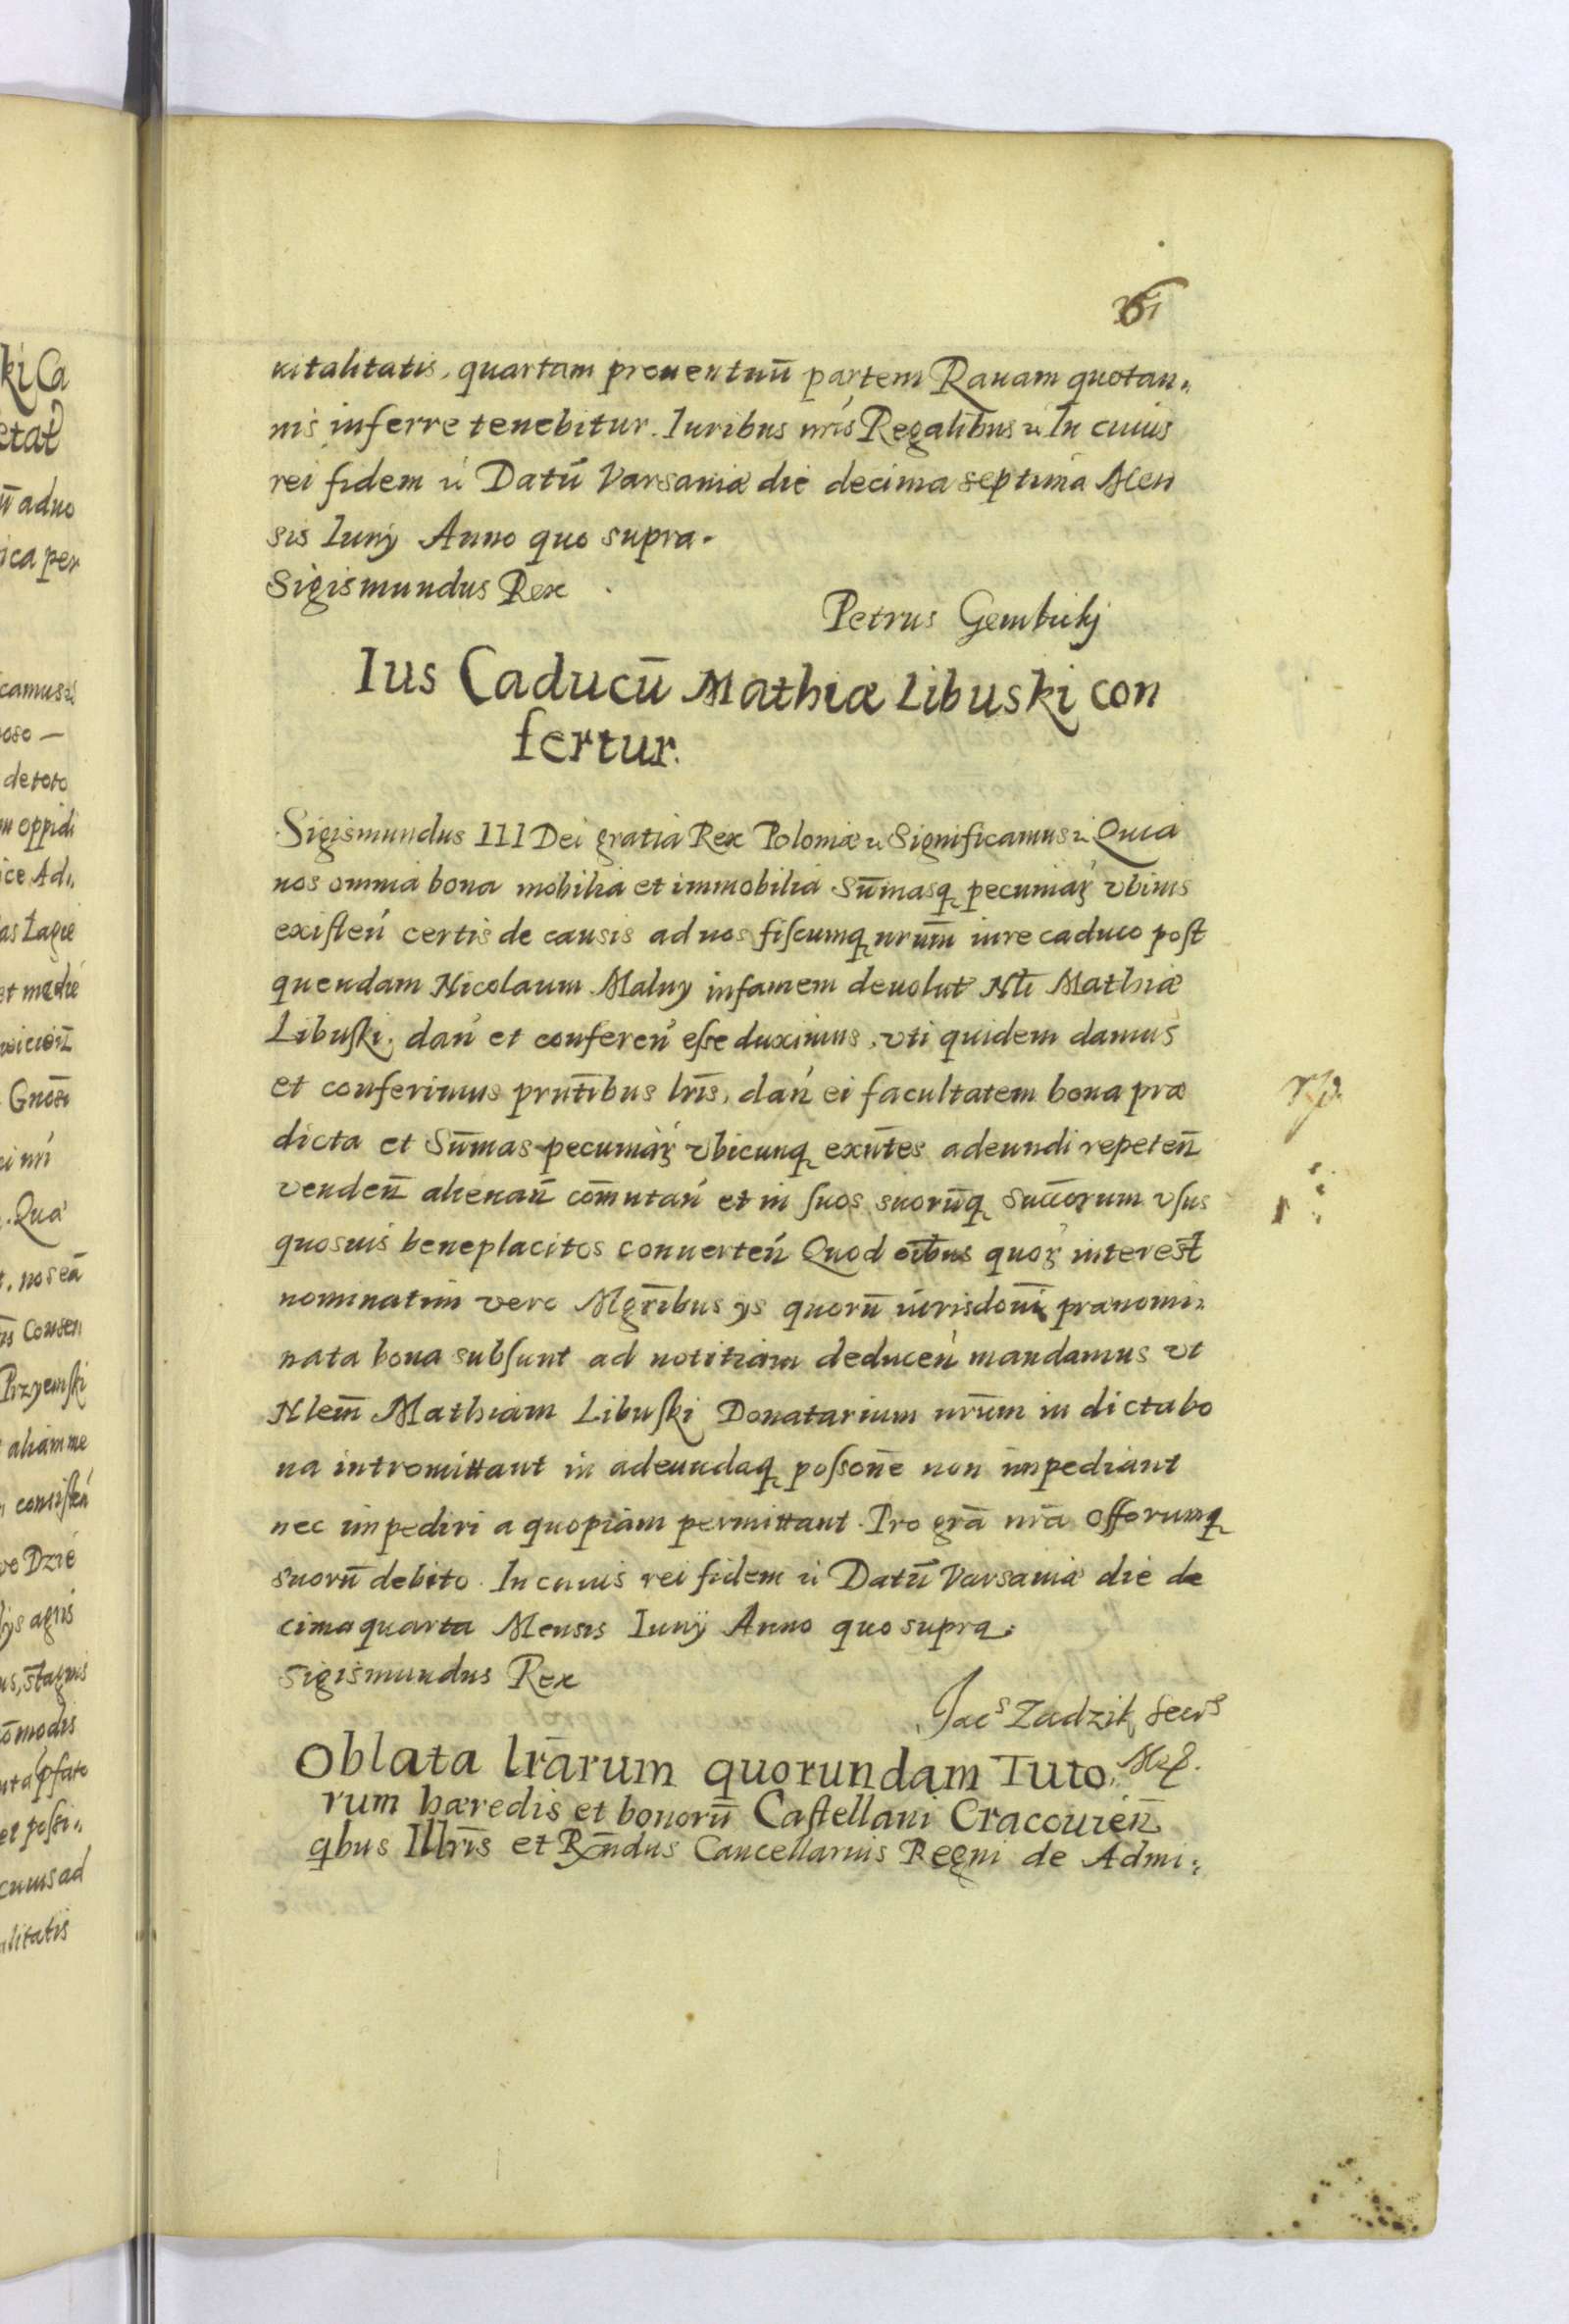 uitalitatis, quartam prouentuū partem Rauam quotan„
nis inferre tenebitur. Iuribus nr̄is Regalibus &c In cuius
rei fidem &c Datū Varsauiæ die decima septima Men
sis Iunÿ Anno quo supra.
Sigismundus Rex
Petrus Gembickj
Ius Caducū Mathiæ Libuski con
fertur.
Sigismundus III Dei gratia Rex Poloniæ &c Significamus &c Quia
nos omnia bona mobilia et immobilia Sūmasq pecuniaꝝ vbiuis
existen̄ certis de causis ad nos fiscumq nr̄um iure caduco post
quendam Nicolaum Maluy infamem deuolut Nli Mathiæ
Libuski dan̄ et conferen̄ esse duximus, vti quidem damus
et conferimus pr̄ntibus lr̄is, dan̄ ei facultatem bona præ
dicta et Sūmas pecuniaꝝ vbicunq exn̄tes adeundi repeten̄
venden̄ alienan̄ com̄utan̄ et in suos suorūq succorum vsus
quosuis beneplacitos conuerten̄ Quod oībus quoꝝ interest
nominatim vero Mgr̄ibus ÿs quorū iurisdoni prænomi„
nata bona subsunt ad notitiam deducen̄ mandamus vt
Nlem̄ Mathiam Libuski Donatarium nr̄um in dicta bo
na intromittant in adeundaq possone non impediant
nec impediri a quopiam permittant. Pro grā nr̄a offorumq
suorū debito. In cuius rei fidem &c Datū Varsauiæ die de
cima quarta Mensis Iunÿ Anno quo supra.
Sigismundus Rex
Jacs Zadzik Secrs
Oblata lr̄arum quorundam Tuto„
rum hæredis et bonorū Castellani Cracouien̄
qbus Illr̄is et Rn̄dus Cancellarius Regni de Admi„